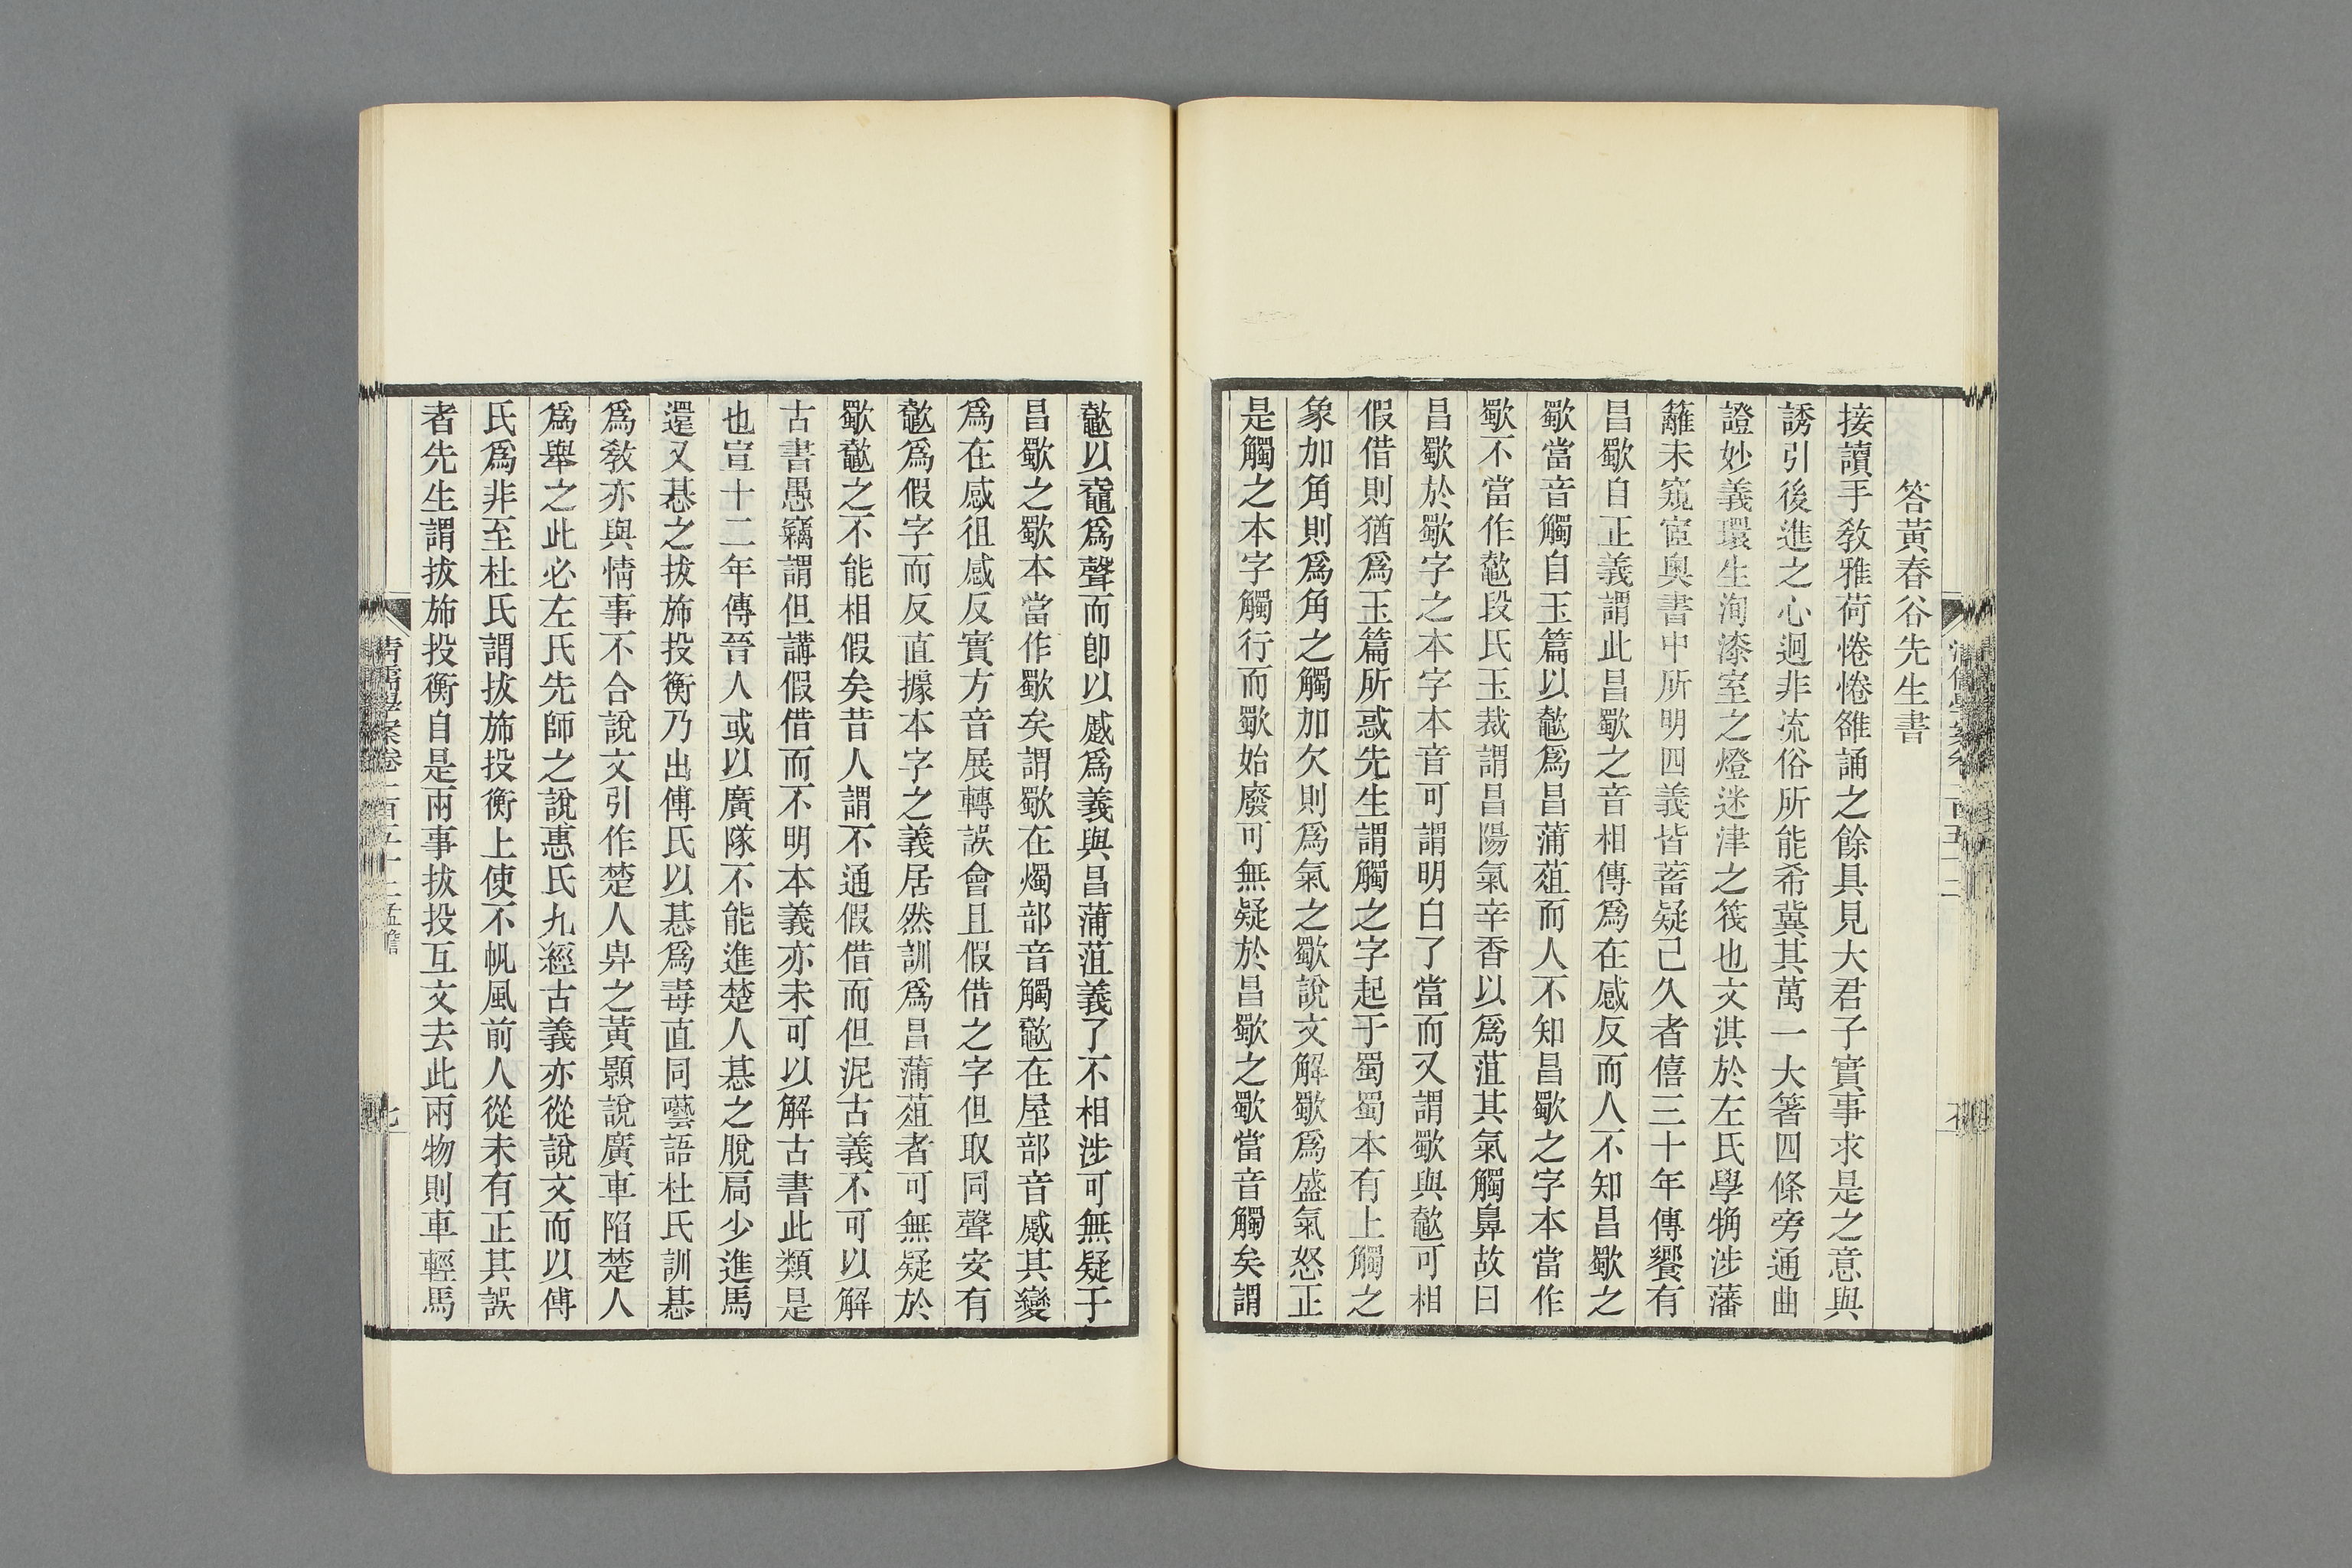 答黃春谷先生書
接讀手敎雅荷惓惓雒誦之餘具見大君子實事求是之意與
誘引後進之心迥非流俗所能希冀其萬一大箸四條旁通曲
證妙義環生洵漆室之燈迷津之筏也文淇於左氏學觕涉藩
籬未窺窔奧書中所明四義皆蓄疑已久者僖三十年傳饗有
昌歜自正義謂此昌歜之音相傳爲在感反而人不知昌歜之
歜當音觸自玉篇以歜爲昌蒲葅而人不知昌歜之字本當作
歜不當作歜段氏玉裁謂昌陽氣辛香以爲菹其氣觸鼻故曰
昌歜於歜字之本字本音可謂明白了當而又謂歜與歜可相
假借則猶爲玉篇所惑先生謂觸之字起于蜀蜀本有上觸之
象加角則爲角之觸加欠則爲氣之歜說文解歜爲盛氣怒正
是觸之本字觸行而歜始廢可無疑於昌歜之歜當音觸矣謂
以爲聲而卽以爲義與昌蒲菹義了不相涉可無疑于
昌歜之歜本當作歜矣謂歜在燭部音觸在屋部音其變
爲在感徂感反實方音展轉誤會且假借之字但取同聲安有
爲假字而反直據本字之義居然訓爲昌蒲葅者可無疑於
歜之不能相假矣昔人謂不通假借而但泥古義不可以解
古書愚竊謂但講假借而不明本義亦未可以解古書此類是
也宣十二年傳晉人或以廣隊不能進楚人惎之脫扃少進馬
還又惎之拔斾投衡乃出傅氏以惎爲毒直同囈語杜氏訓惎
爲敎亦與情事不合說文引作楚人𢌿之黃顥說廣車陷楚人
爲舉之此必左氏先師之說惠氏九經古義亦從說文而以傅
氏爲非至杜氏謂拔斾投衡上使不帆風前人從未有正其誤
者先生謂拔斾投衡自是兩事拔投互文去此兩物則車輕馬
清儒學案卷一百五十二 孟瞻
七